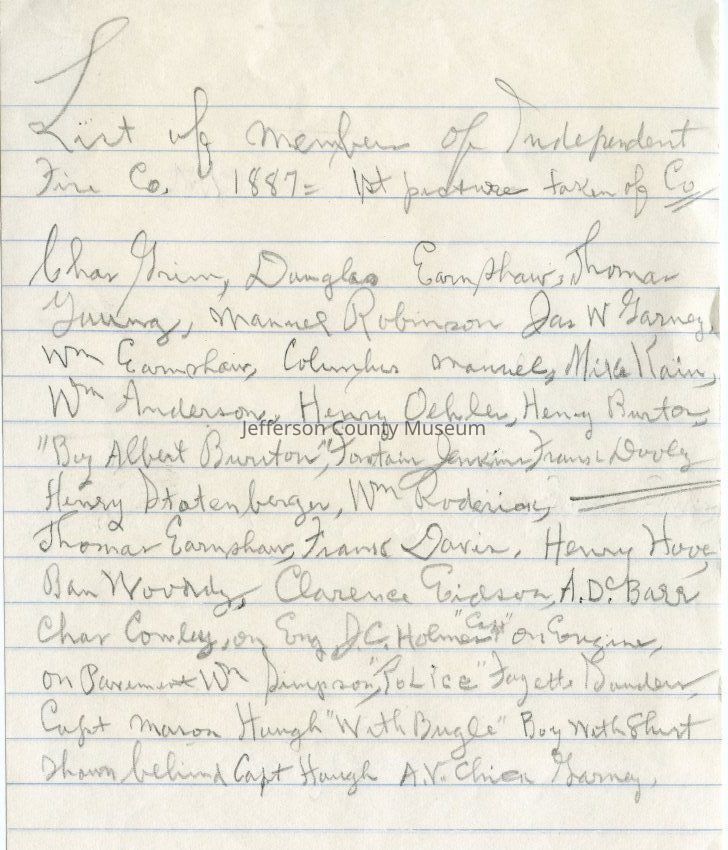 List of members of Independent
Fire Co. 1887= 1st picture taken of Co
Chas Grim, Douglas Earnshaw, Thomas
Young, Manuel Robinson Jas W Garney,
Wm Earnshaw, Columbus Manuel, Mike Kain,
Wm Anderson, Henry Oehler, Henry Burton
Jefferson County Museum
"Boy Albert Burton", Fontain Jenkins Frank Dooly
Henry Stotenberger, Wm Roderick,
Thomas Earnshaw, Frank Davis, Henry
Ban Woody, Clarence Eidson, A.D. Barr
Chas Comley, on Eng J.C. Holmes "Capt" on Engine,
on Pavement Wm Simpson, "Police" Fayette
Capt Mason Haugh "With Bugle" Boy With Shirt
shown behind Capt Haugh A.V. Garney.